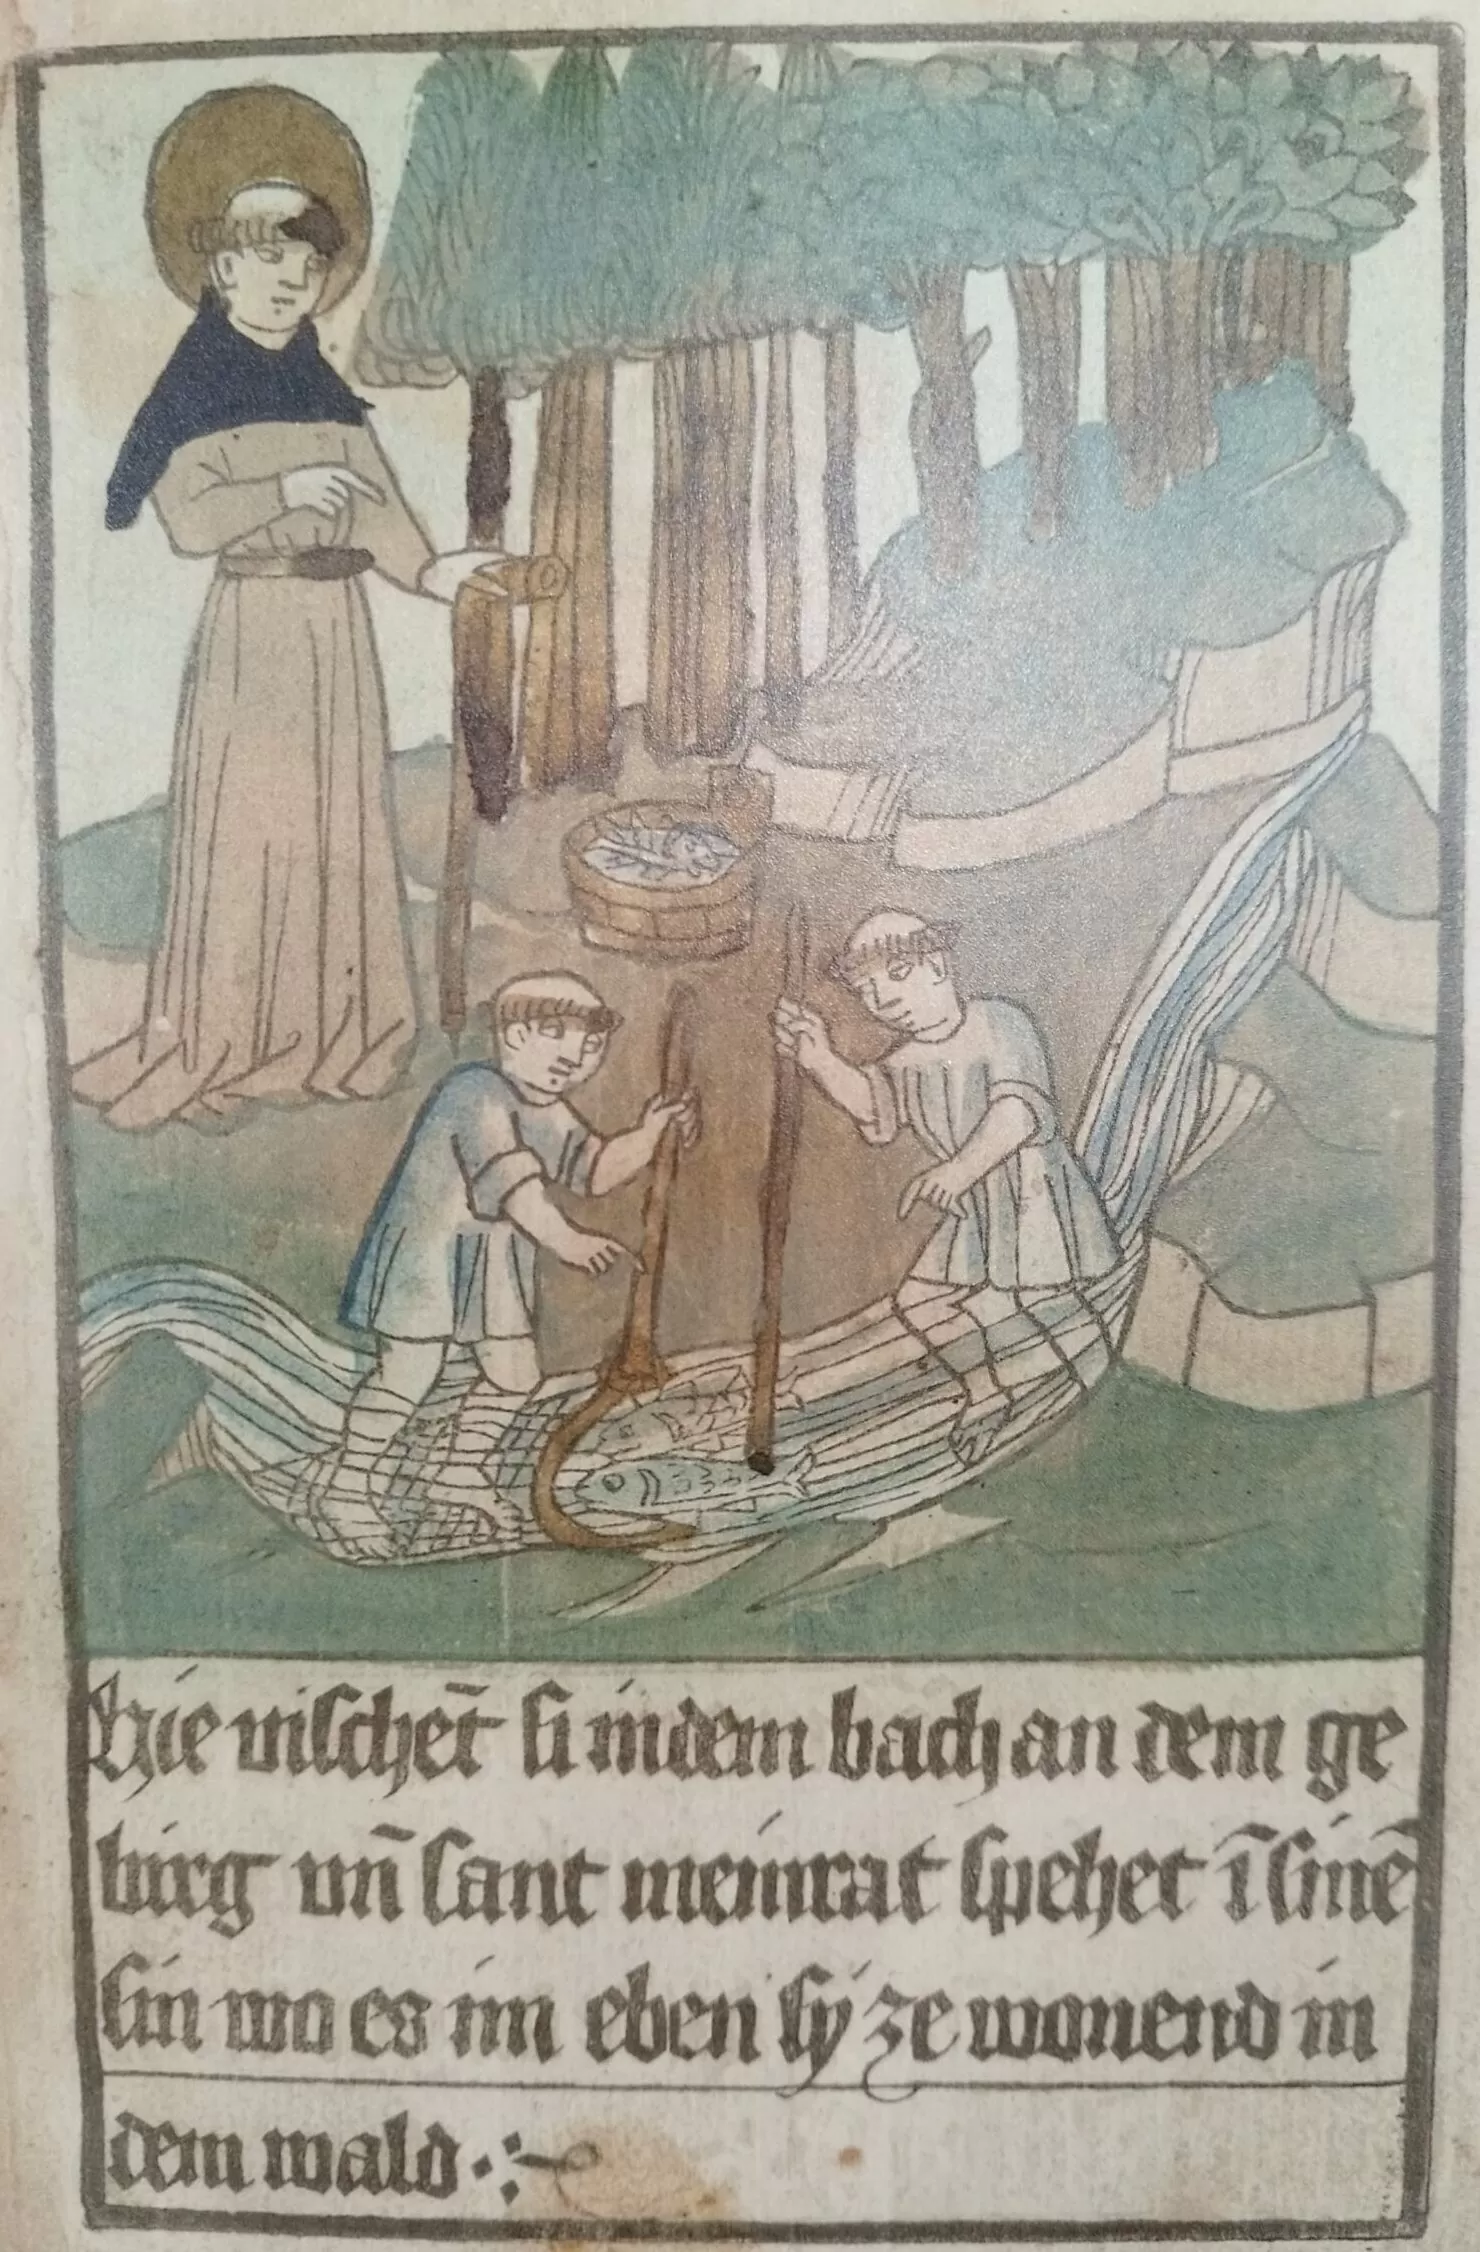 Hie vischēt si indem bach an dem ge
birg vn̄ sant meinrat spehet ī sinē
sin wo es im eben sÿ ze wonend in
dem wald